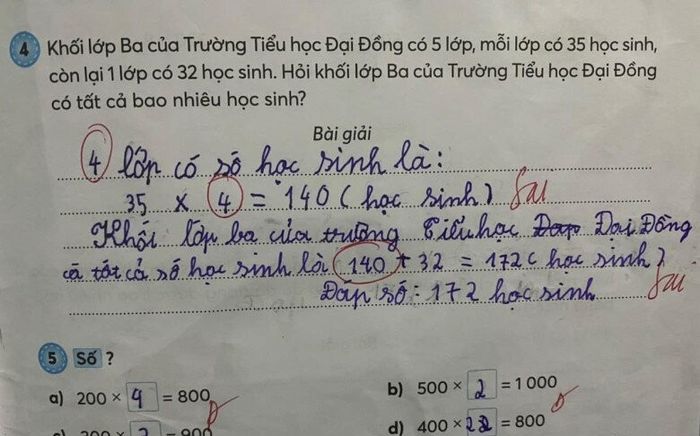 4 Khối lớp Ba của Trường Tiểu học Đại Đồng có 5 lớp, mỗi lớp có 35 học sinh,
còn lại 1 lớp có 32 học sinh. Hỏi khối lớp Ba của Trường Tiểu học Đại Đồng
có tất cả bao nhiêu học sinh?
Bài giải
4 lớp có số học sinh là:
35 x 4 = 140 ( học sinh ) Sai
Khối lớp ba của trường Tiểu học Đạp Đại Đồng
có tất cả số học sinh là 140 + 32 = 172 ( học sinh )
Đáp số : 172 học sinh Sai
5 Số ?
a) 200 × 4 = 800 b) 500 × 2 = 1 000
200 × 900 d) 400 × 2 = 800